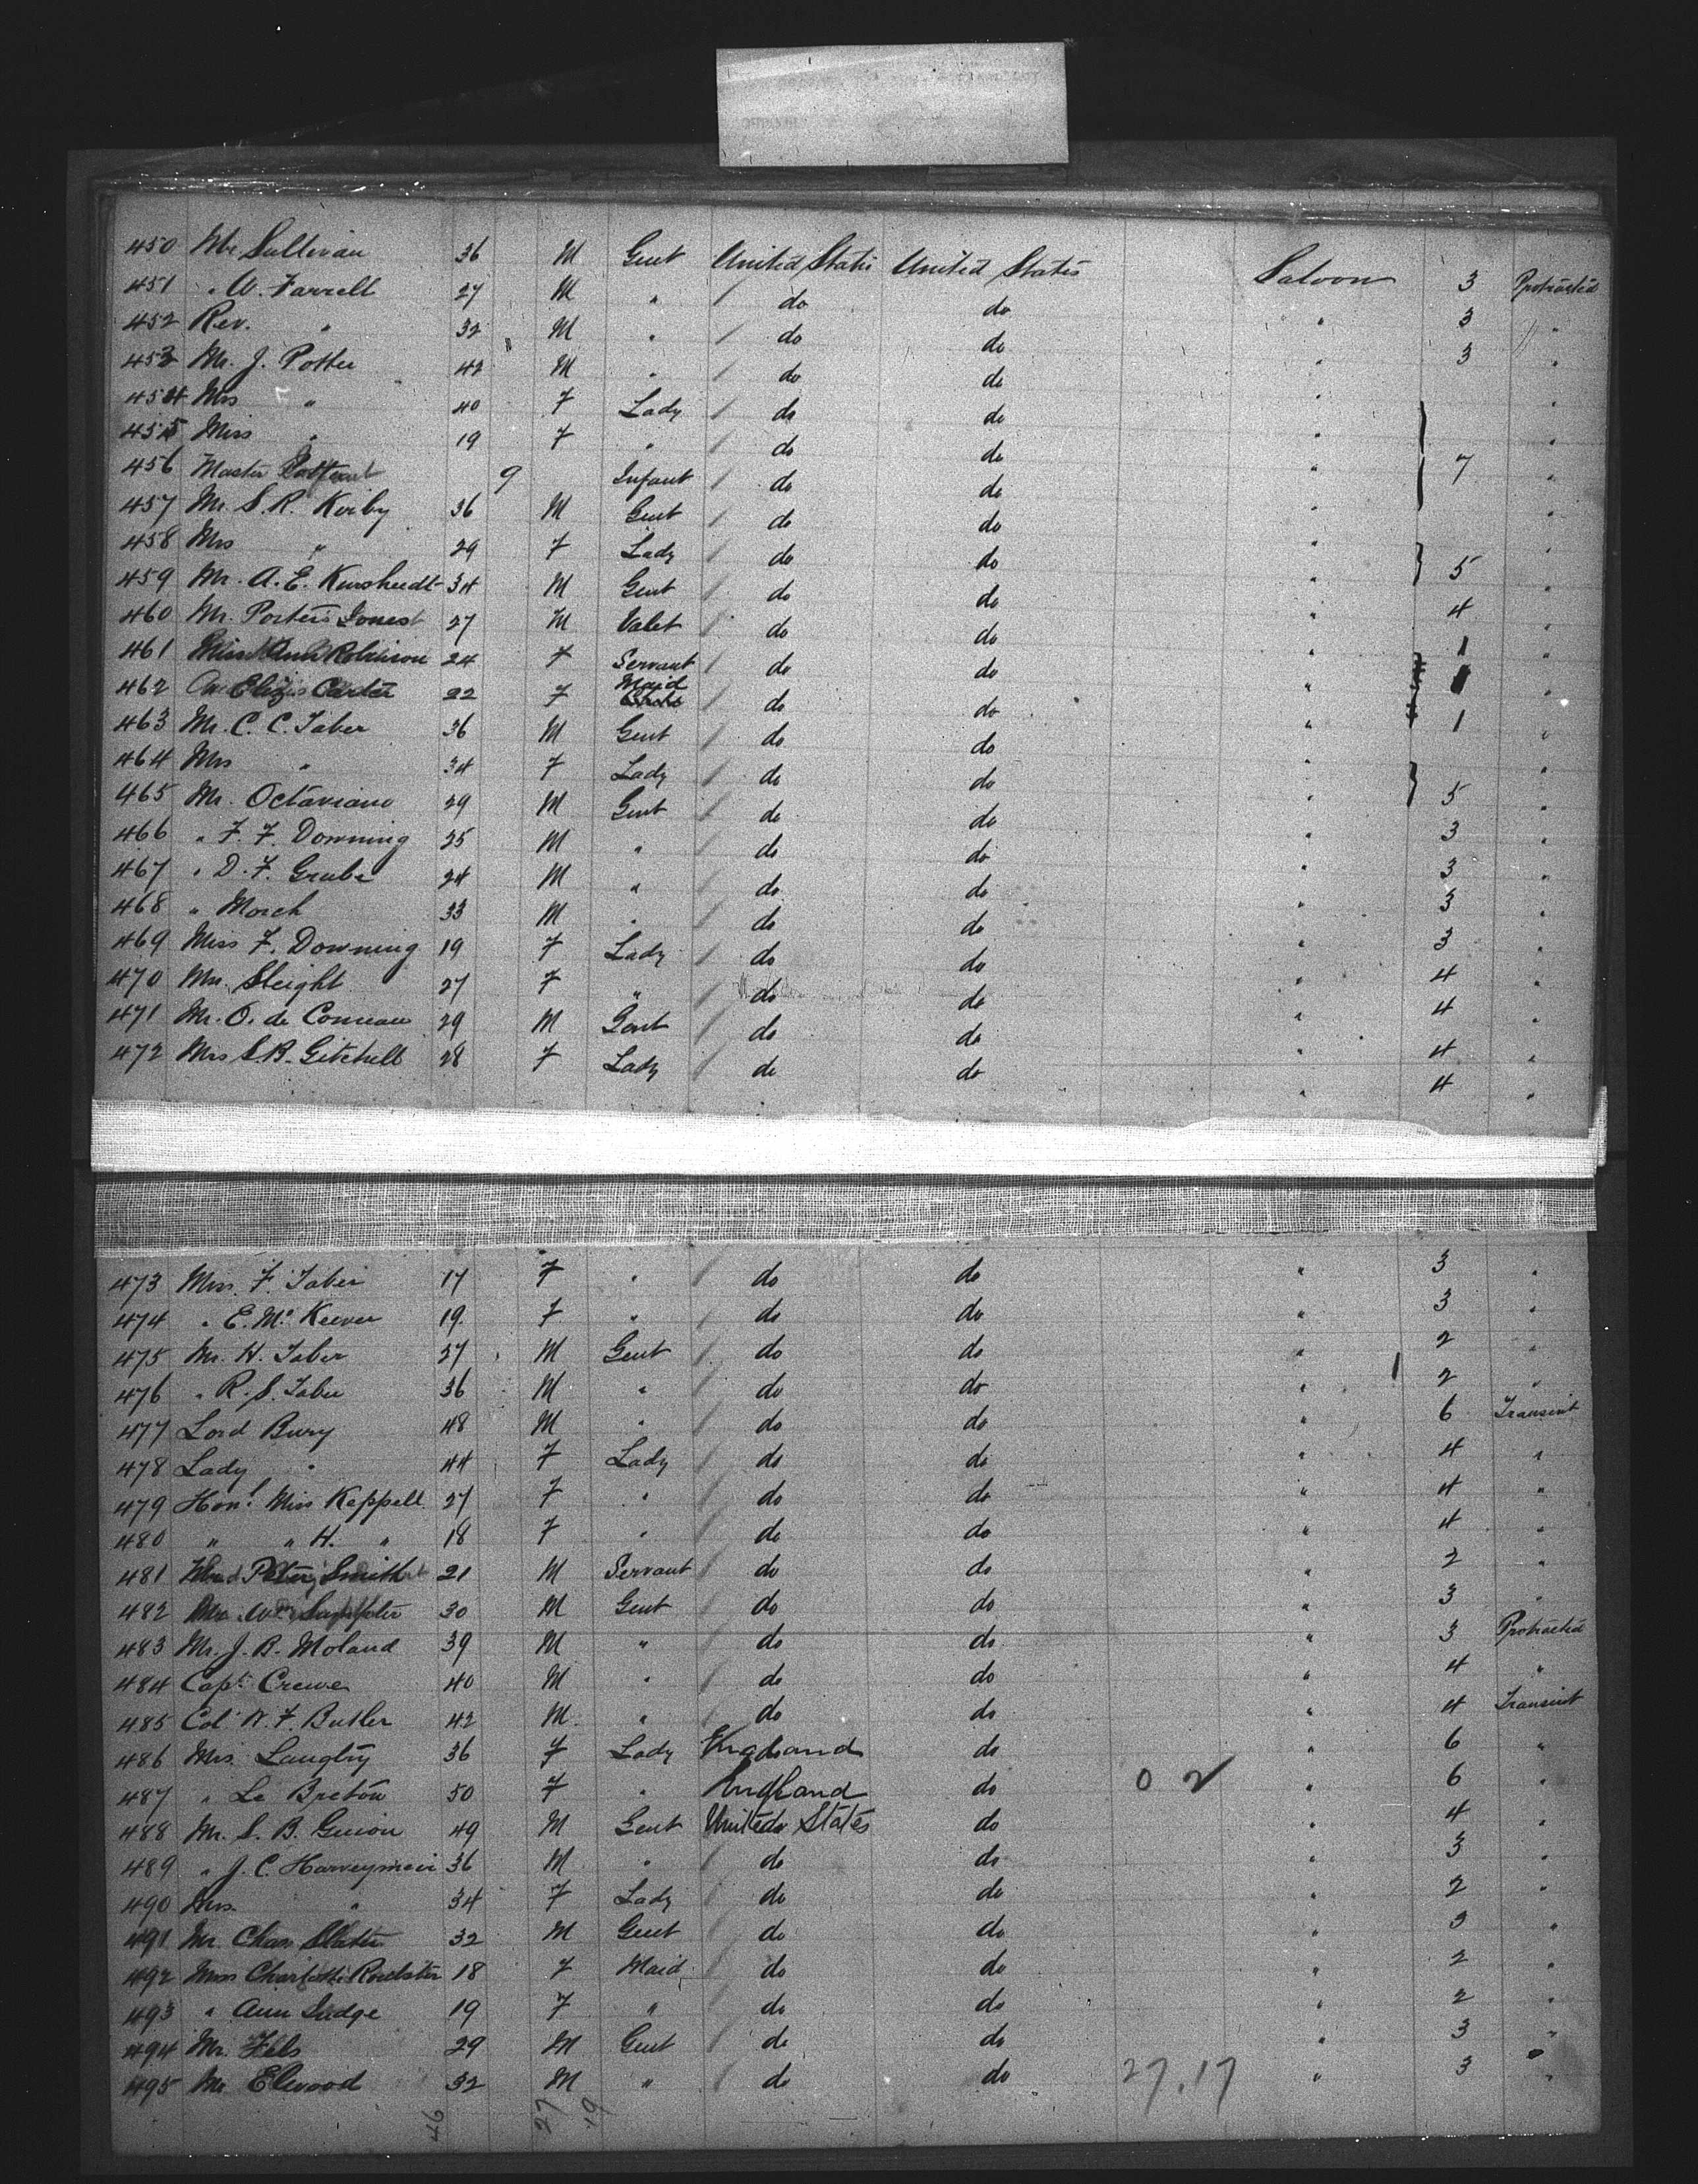 450 Mr Sullivan 36 M Gent United States United States Saloon 3 Protracted
451 " W. Farrell 27 M " do do " 3 "
452 Rev. " 32 M " do do " 3 "
453 Mr. J. Potter 42 M " do do " "
454 Mrs " 40 F Lady do do " "
455 Miss " 19 F " do do " 7 "
456 Master 9 Infant do do " "
457 Mr. S. R. Kirby 36 M Gent do do " "
458 Mrs " 29 F Lady do do " 5 "
459 Mr. A. E. Kursheedt 34 M Gent do do " 4 "
460 Mr. Porter Jones 27 M Valet do do " 1 "
461 Miss Ann Robinson 24 F Servant do do " "
462 Eliza Carter 22 F Maid do do " 1 "
463 Mr. C. C. Taber 36 M Gent do do " "
464 Mrs " 34 F Lady do do " 5 "
465 Mr. Octaviano 29 M Gent do do " 3 "
466 " F. F. Downing 25 M " do do " 3 "
467 " D. F. Grube 24 M " do do " 3 "
468 " Morch 33 M " do do " 3 "
469 Miss F. Downing 19 F Lady do do " 4 "
470 Mrs. Sleight 27 F " do do " 4 "
471 Mr. O. de Comeau 29 M Gent do do " 4 "
472 Mrs S. B. Getchell 28 F Lady do do " 4 "
473 Miss. F. Taber 17 F " do do " 3 "
474 " E. Mc Keever 19 F " do do " 3 "
475 Mr. H. Taber 27 M Gent do do " 2 "
476 " R. S. Taber 36 M " do do " 2 "
477 Lord Bury 48 M " do do " 6 Transient
478 Lady " 44 F Lady do do " 4 "
479 Honl Miss Keppell 27 F " do do " 4 "
480 " " H. " 18 F " do do " 4 "
481 Peter Smith 21 M Servant do do " 2 "
482 Mr Wm 30 M Gent do do " 3 "
483 Mr. J. B. Moland 39 M " do do " 3 Protracted
484 Capt. Crewe 40 M " do do " 4 "
485 Col W. F. Butler 42 M " do do " 4 Transient
486 Mrs. Langtry 36 F Lady England do " 6 "
487 " Le Breton 50 F " England do 0 2 " 6 "
488 Mr. S. B. Guion 49 M Gent United States do " 4 "
489 " J. C. 36 M " do do " 3 "
490 Mrs. " 34 F Lady do do " 2 "
491 Mr. Chas Slater 32 M Gent do do " 3 "
492 Miss Charlotte 18 F Maid do do " 2 "
493 " Ann Sudge 19 F " do do " 2 "
494 Mr. Fels 29 M Gent do do " 3 "
495 Mr Elwood 32 M " do do 27.17 " 3 "
46 27 19